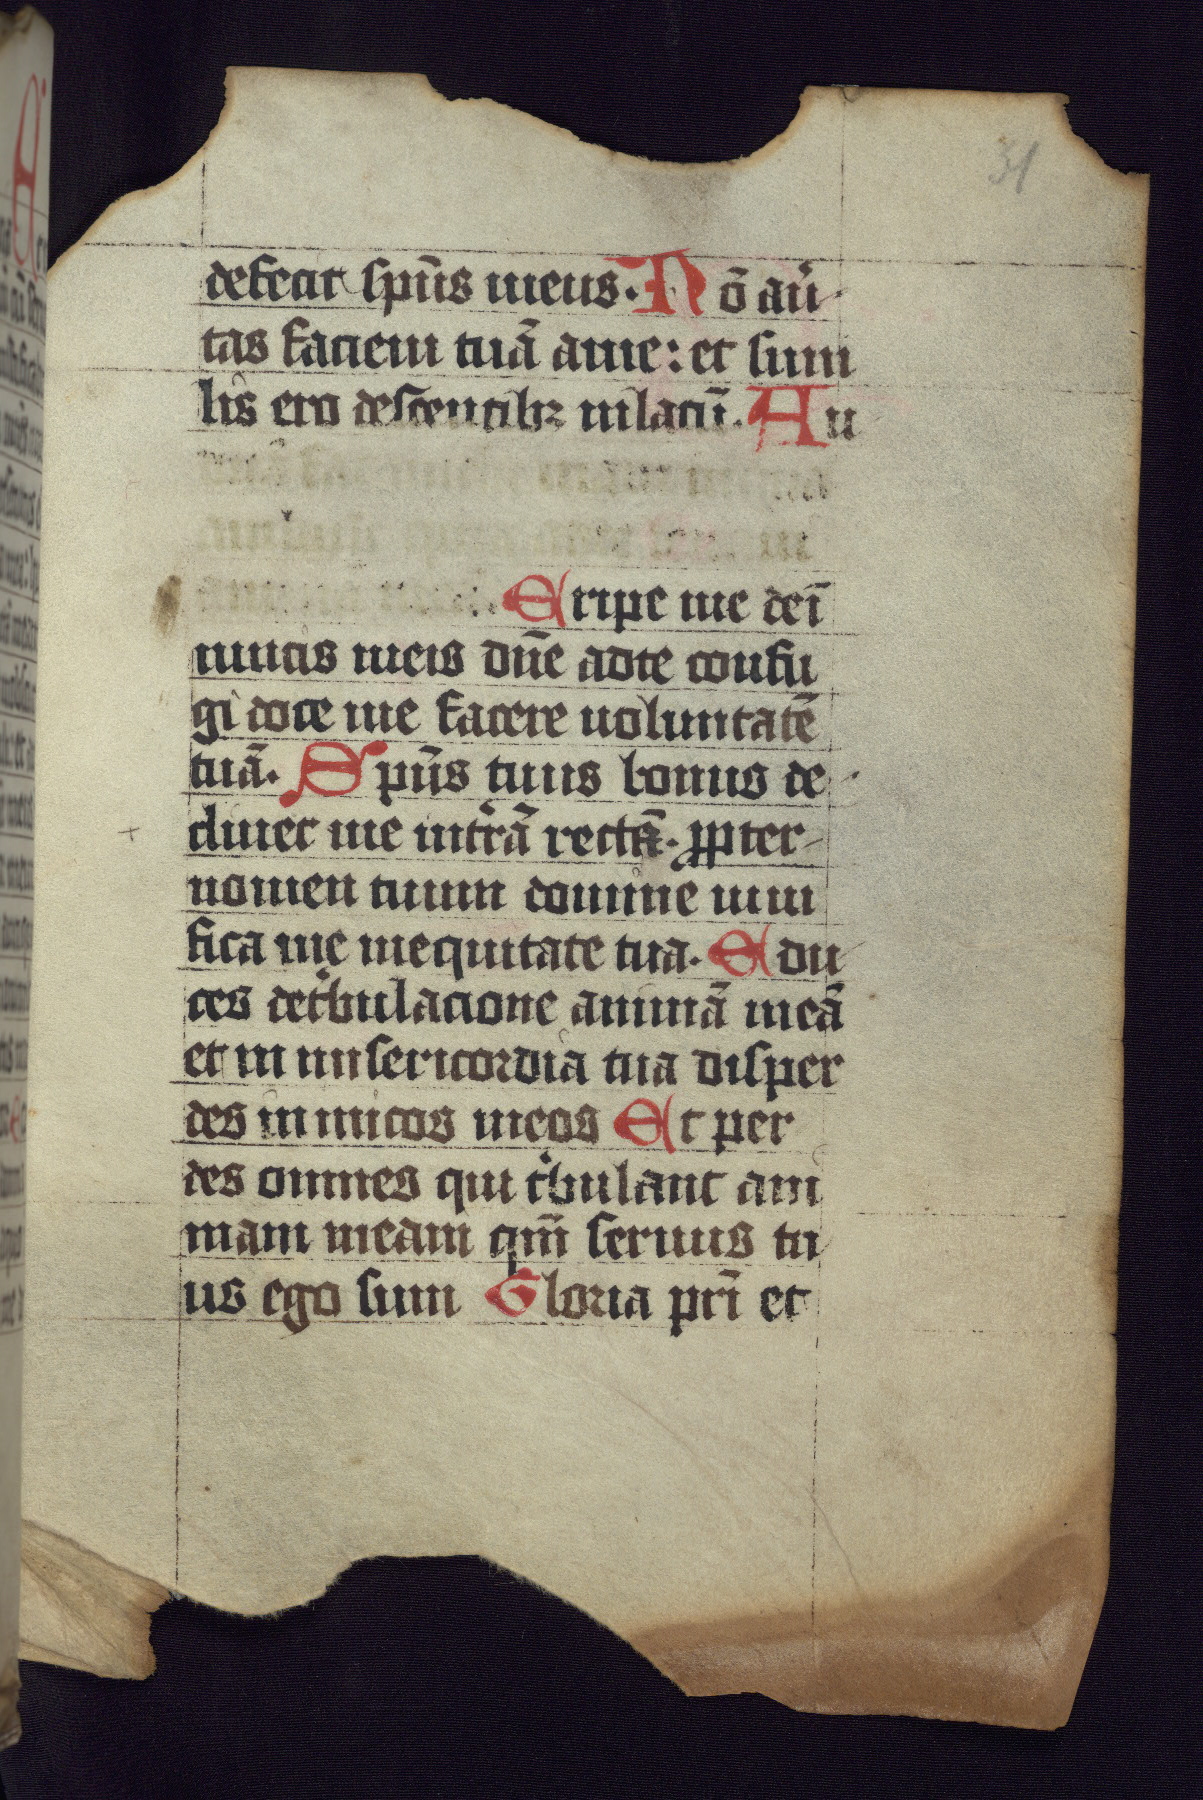 31
defecit sp̄us meus. Nō au̇
tas faciem tuā a me: et simi
lis ero descentibꝫ in lacū. Au
Eripe me dei
nimicis meis dn̄e ad te confu
gi doce me facere uoluntatē
tuā. Sp̄us tuus bonus de
ducet me in t̓rā rectā. ꝓpter
nomen tuum domine uiui
fica me in equitate tua. Edu
ces de t̓bulacione animā meā
et in misericordia tua disper
des in imicos meos Et per
des omnes qui t̓bulant ani
mam meam qm̄ seruus tu
us ego sum Gloria pr̄i et